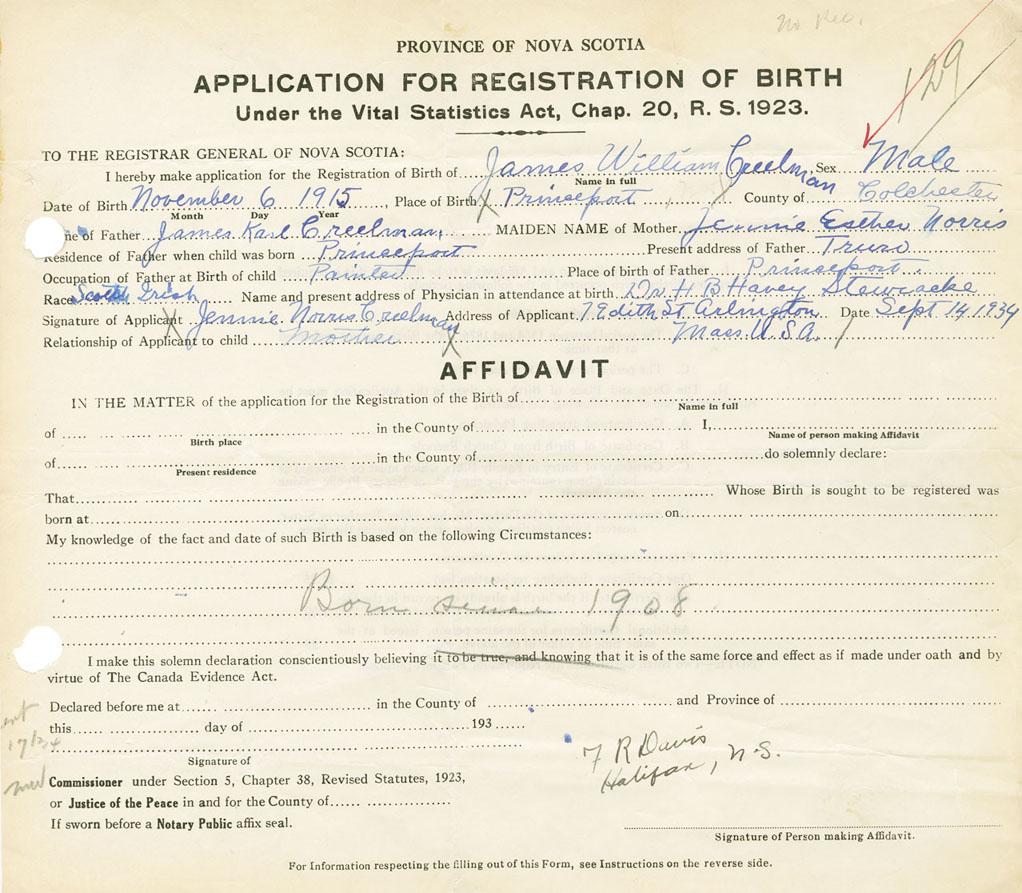 no Rec.
129
PROVINCE OF NOVA SCOTIA
APPLICATION FOR REGISTRATION OF BIRTH
Under the Vital Statistics Act, Chap. 20, R. S. 1923.
TO THE REGISTRAR GENERAL OF NOVA SCOTIA:
I hereby make application for the Registration of Birth of James William Creelman Sex Male
Name in full
Date of Birth November 6 1915, Place of Birth Princeport, County of Colchester
Month Day Year
ne of Father James Karl Creelman MAIDEN NAME of Mother Jennie Esther Norris
Residence of Father when child was born Princeport Present address of Father Truro
Occupation of Father at Birth of child Painter Place of birth of Father Princeport.
Race Scotch Irish Name and present address of Physician in attendance at birth Dr H B Havey Stewiacke
Signature of Applicant Jennie Norris Creelman Address of Applicant 7 Edith St. Arlington Date Sept 14 1934
Relationship of Applicant to child Mother Mass. U.S.A.
AFFIDAVIT
IN THE MATTER of the application for the Registration of the Birth of
Name in full
of in the County of I,
Birth place Name of person making Affidavit
of in the County of do solemnly declare:
Present residence
That Whose Birth is sought to be registered was
born at on
My knowledge of the fact and date of such Birth is based on the following Circumstances:
Born since 1908
I make this solemn declaration conscientiously believing it to be true, and knowing that it is of the same force and effect as if made under oath and by
virtue of The Canada Evidence Act.
Declared before me at in the County of and Province of
this day of 193
Signature of
17/9/34
F R Davis
Halifax, N.S.
Commissioner under Section 5, Chapter 38, Revised Statutes, 1923,
or Justice of the Peace in and for the County of
If sworn before a Notary Public affix seal.
Signature of Person making Affidavit.
For Information respecting the filling out of this Form, see Instructions on the reverse side.